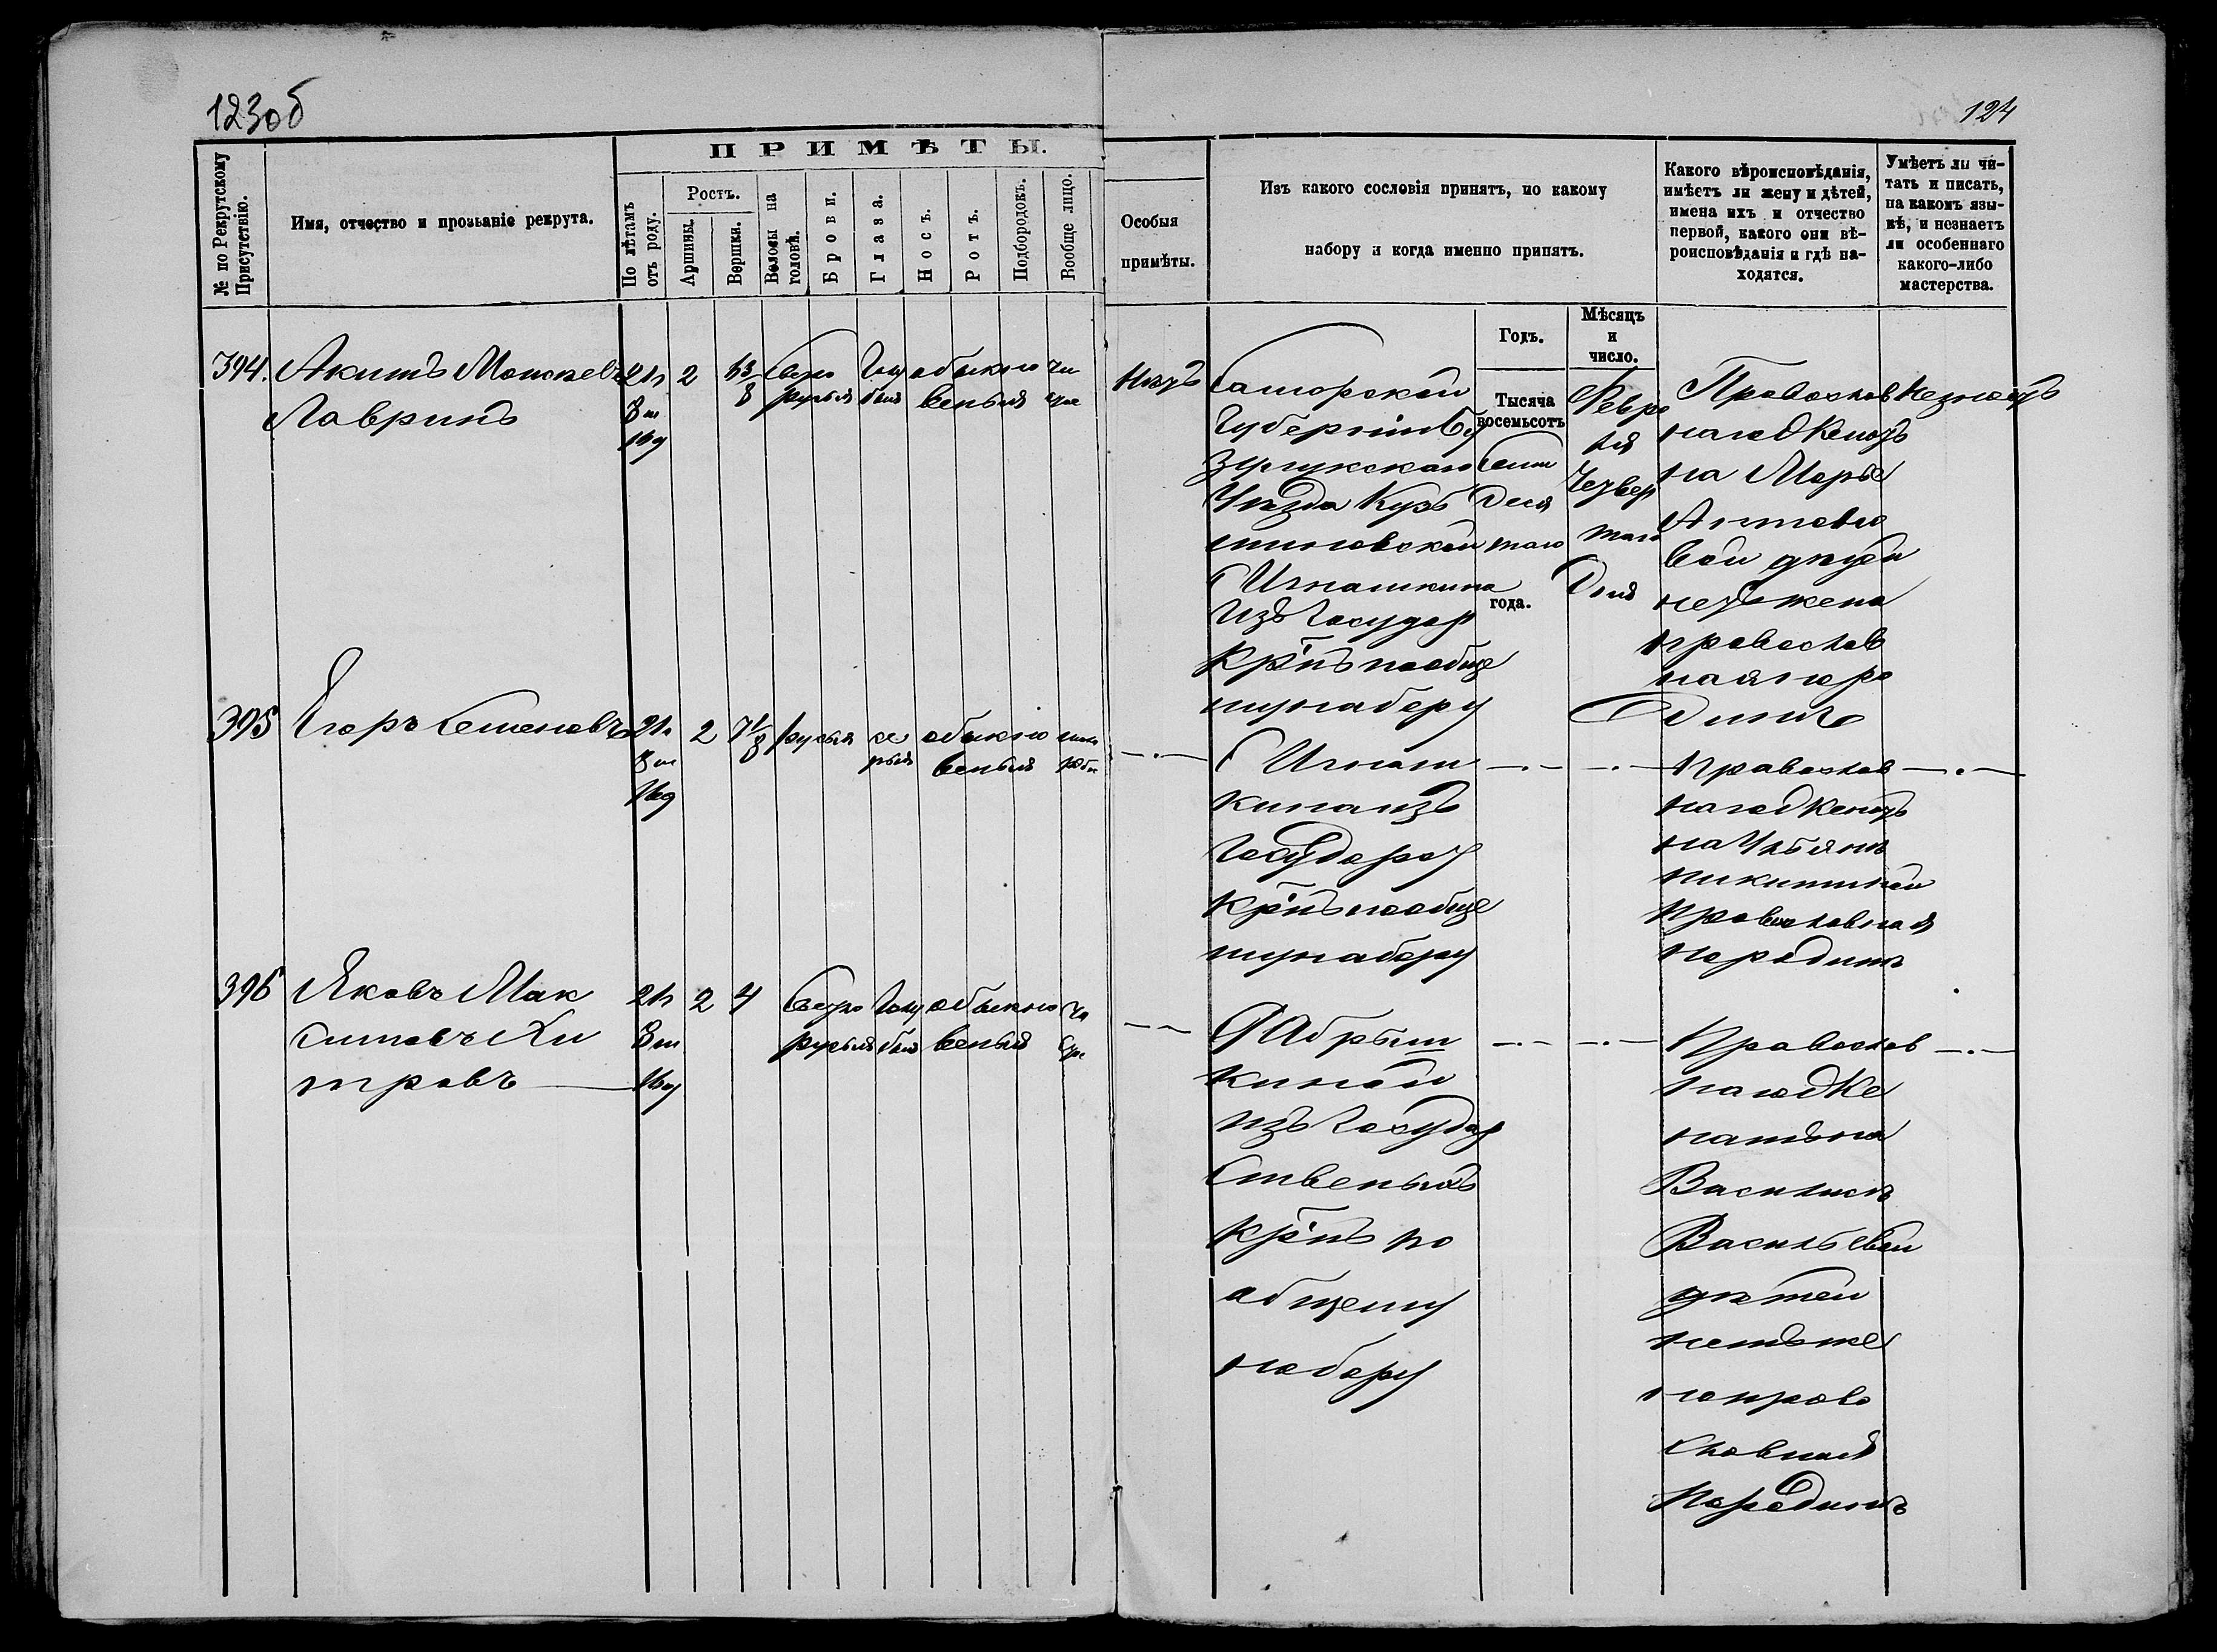 123об
124
ПРИМѢТЫ.
№ по Рекрутскому Присутствію.
Имя, отчество и прозьаніе рекрута.
По лѣтамъ отъ роду.
Ростъ.
Аршины.
Вершки.
Волосы на головѣ.
Брови.
Глаза.
Носъ.
Ротъ.
Подбородокъ.
Вообще лицо.
Особыя
примѣты.
Изъ какого сословія принятъ, по какому
набору и когда именно принятъ.
Какого вѣроисповѣданія,
имѣетъ ли жену и дѣтей,
имена ихъ и отчество
первой, какого они вѣ-
роисповѣданія и гдѣ на-
ходятся.
Умѣетъ ли чи-
тать и писать,
на какомъ язы-
кѣ, и незнаетъ
ли особеннаго
какого-либо
мастерства.
Годъ.
Мѣсяцъ
и
число.
394. Акимъ
Лавринъ
21
2
Свѣтло
русыя
Голу
быя
обыкно
венныя
чи
стое
Нѣтъ
Самарской
Губерніи Бу
зулукскаго
Уѣзда Кузь
миновской
С Игнашкина
Изъ Государ
Кр͠нъ пообще
мунабору
Тысяча
восемьсотъ
Семи
Деся
таго
года.
Февра
ля
Четвер
таго
Дня
Православ
наго Женатъ
на Марье
вой дѣтей
нетъ жена
православ
ная на ро
Динѣ
Незнаетъ
395 Егоръ Семеновъ
21
2
7 1/8
русыя
се
рыя
обыкно
венныя
С Игнаш
кина изъ
Государ
Кр͠нъ пообще
мунабору
Православ
наго Женатъ
на Ульяне
Никитиной
Православная
народинѣ
396 Яковъ Мак
симовъ Хи
тровъ
21
2 4
Свѣтло
русыя
Голу
быя
обыкно
венныя
чи
стое
киной
изъ Государ
Ственныхъ
Кр͠нъ по
общему
набору
Православ
наго Же
натъ на
Василисе
Васильевой
дѣтей
нетъ же
на право
славная
Народинѣ